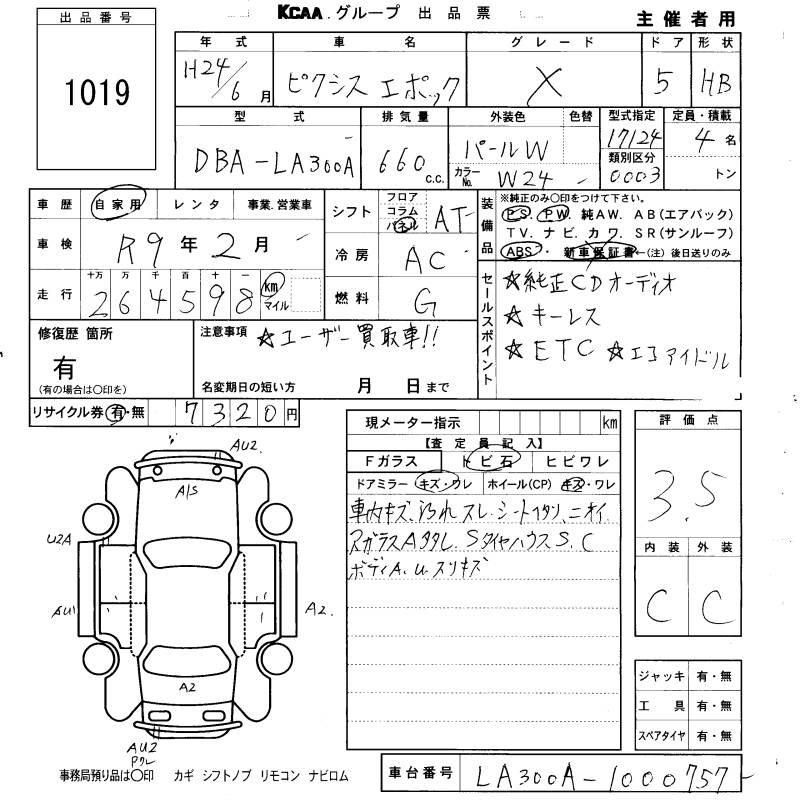 出品番号
1019
KCAA.グループ 出品票
主催者用
年式 車名 グレード ドア 形状
H24/6月 ピクシス エポック X 5 HB
型式 排気量 外装色 色替 型式指定 定員・積載
DBA-LA300A 660 c.c. パールW 17124 4名
カラーNo. W24 類別区分 0003 トン
車歴 自家用 レンタ 事業.営業車
車検 R9年2月
走行 十万 万 千 百 十 一
264598 km マイル
シフト フロア コラム パネル AT
冷房 AC
燃料 G
装備品
※純正のみ○印をつけて下さい。
PS. PW. 純AW. AB(エアバック)
TV. ナビ. カワ. SR(サンルーフ)
ABS・ 新車保証書←(注)後日送りのみ
セールスポイント
☆純正CDオーディオ
☆キーレス
☆ETC ☆エコアイドル
修復歴 箇所
有
(有の場合は○印を)
注意事項 ☆ユーザー買取車!!
名変期日の短い方 月 日まで
リサイクル券 有・無 7320円
現メーター指示 km
【査定員記入】
Fガラス トビ石 ヒビワレ
ドアミラー キズ・ワレ ホイール(CP) キズ・ワレ
車内キズ、汚れ スレ.シートヘタリ、ニオイ
FガラスAタタレ.Sタイヤハウス S.C
ボディA.U.スリキズ
評価点
3.5
内装 外装
C C
ジャッキ 有・無
工具 有・無
スペアタイヤ 有・無
AU2.
A/S
U2A
AU1
A2.
A2
AU2
Pクレ
事務局預り品は○印 カギ シフトノブ リモコン ナビロム
車台番号 LA300A-1000757